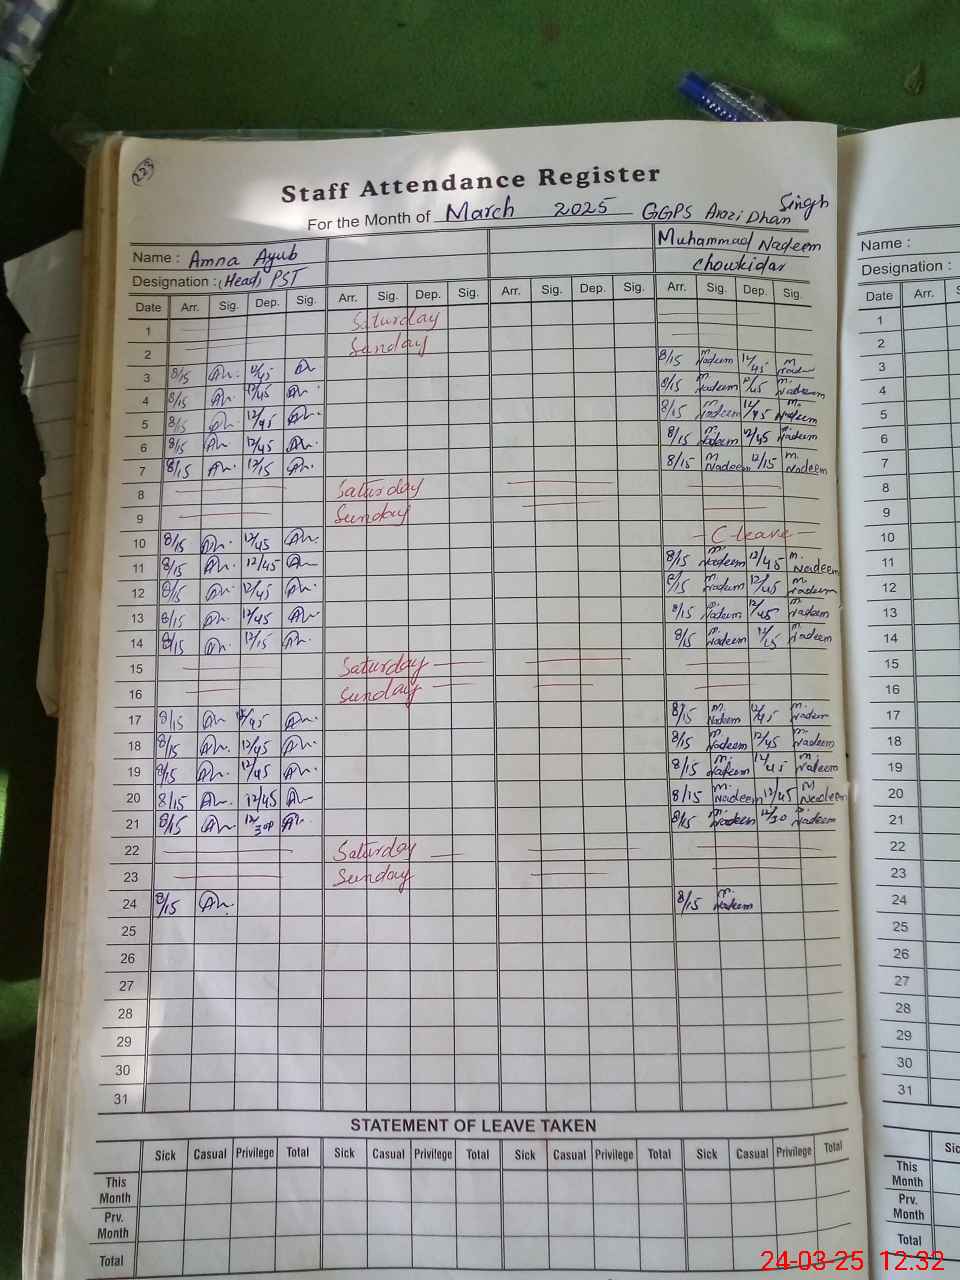 223
Staff Attendance Register
For the Month of March 2025 GGPS Arazi Dhan Singh
Name : Amna Ayub Muhammad Nadeem
Designation : (Head) PST Chowkidar
Date Arr. Sig. Dep. Sig. Arr. Sig. Dep. Sig. Arr. Sig. Dep. Sig. Arr. Sig. Dep. Sig.
1 Saturday
2 Sunday
3 8/15 12/45 8/15 Nadeem 12/45
4 8/15 12/45 8/15 m. Nadeem 12/45 m. Nadeem
5 8/15 12/45 8/15 m. Nadeem 12/45 m. Nadeem
6 8/15 12/45 8/15 m. Nadeem 12/45 Nadeem
7 8/15 12/15 8/15 m Nadeem 12/15 m. Nadeem
8 Saturday
9 Sunday
10 8/15 12/45 C leave
11 8/15 12/45 8/15 m. Nadeem 12/45 m. Nadeem
12 8/15 12/45 8/15 m. Nadeem 12/45 m. Nadeem
13 8/15 12/45 8/15 m. Nadeem 12/45 m. Nadeem
14 8/15 12/15 8/15 m. Nadeem 12/15 m. Nadeem
15 Saturday
16 Sunday
17 8/15 12/45 8/15 m. Nadeem 12/45 m. Nadeem
18 8/15 12/45 8/15 m. Nadeem 12/45 m. Nadeem
19 8/15 12/45 8/15 m. Nadeem 12/45 m. Nadeem
20 8/15 12/45 8/15 m. Nadeem 12/45 m Nadeem
21 8/15 12/30 8/15 m. Nadeem 12/30 Nadeem
22 Saturday
23 Sunday
24 8/15 8/15 m. Nadeem
25
26
27
28
29
30
31
STATEMENT OF LEAVE TAKEN
Sick Casual Privilege Total Sick Casual Privilege Total Sick Casual Privilege Total Sick Casual Privilege Total
This Month
Prv. Month
Total
Name :
Designation :
Date Arr.
1
2
3
4
5
6
7
8
9
10
11
12
13
14
15
16
17
18
19
20
21
22
23
24
25
26
27
28
29
30
31
This Month
Prv. Month
Total
24-03-25 12.32